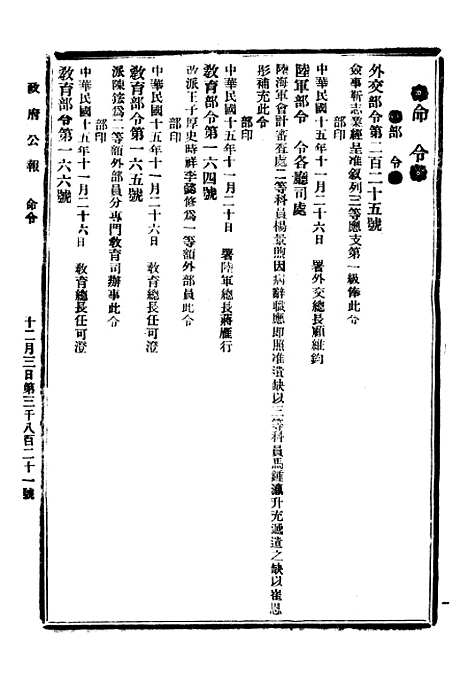 命令
部令
外交部令第二百二十五號
僉事靳志業經呈准叙列三等應支第一級俸此令
部印
中華民國十五年十一月二十六日 署外交總長顧維鈞
陸軍部令 令各廳司處
陸海軍會計審查處二等科員楊景煦因病辭職應即照准遺缺以三等科員馬鍾瀛升充遞遺之缺以崔恩
彤補充此令
部印
中華民國十五年十一月二十日 署陸軍總長蔣雁行
教育部令第一六四號
改派王子厚史時祥李懿修爲一等額外部員此令
部印
中華民國十五年十一月二十六日 教育總長任可澄
教育部令第一六五號
派陳鋐爲二等額外部員分專門教育司辦事此令
部印
中華民國十五年十一月二十六日 教育總長任可澄
教育部令第一六六號
政府公報 命令 十二月三日第三千八百二十一號